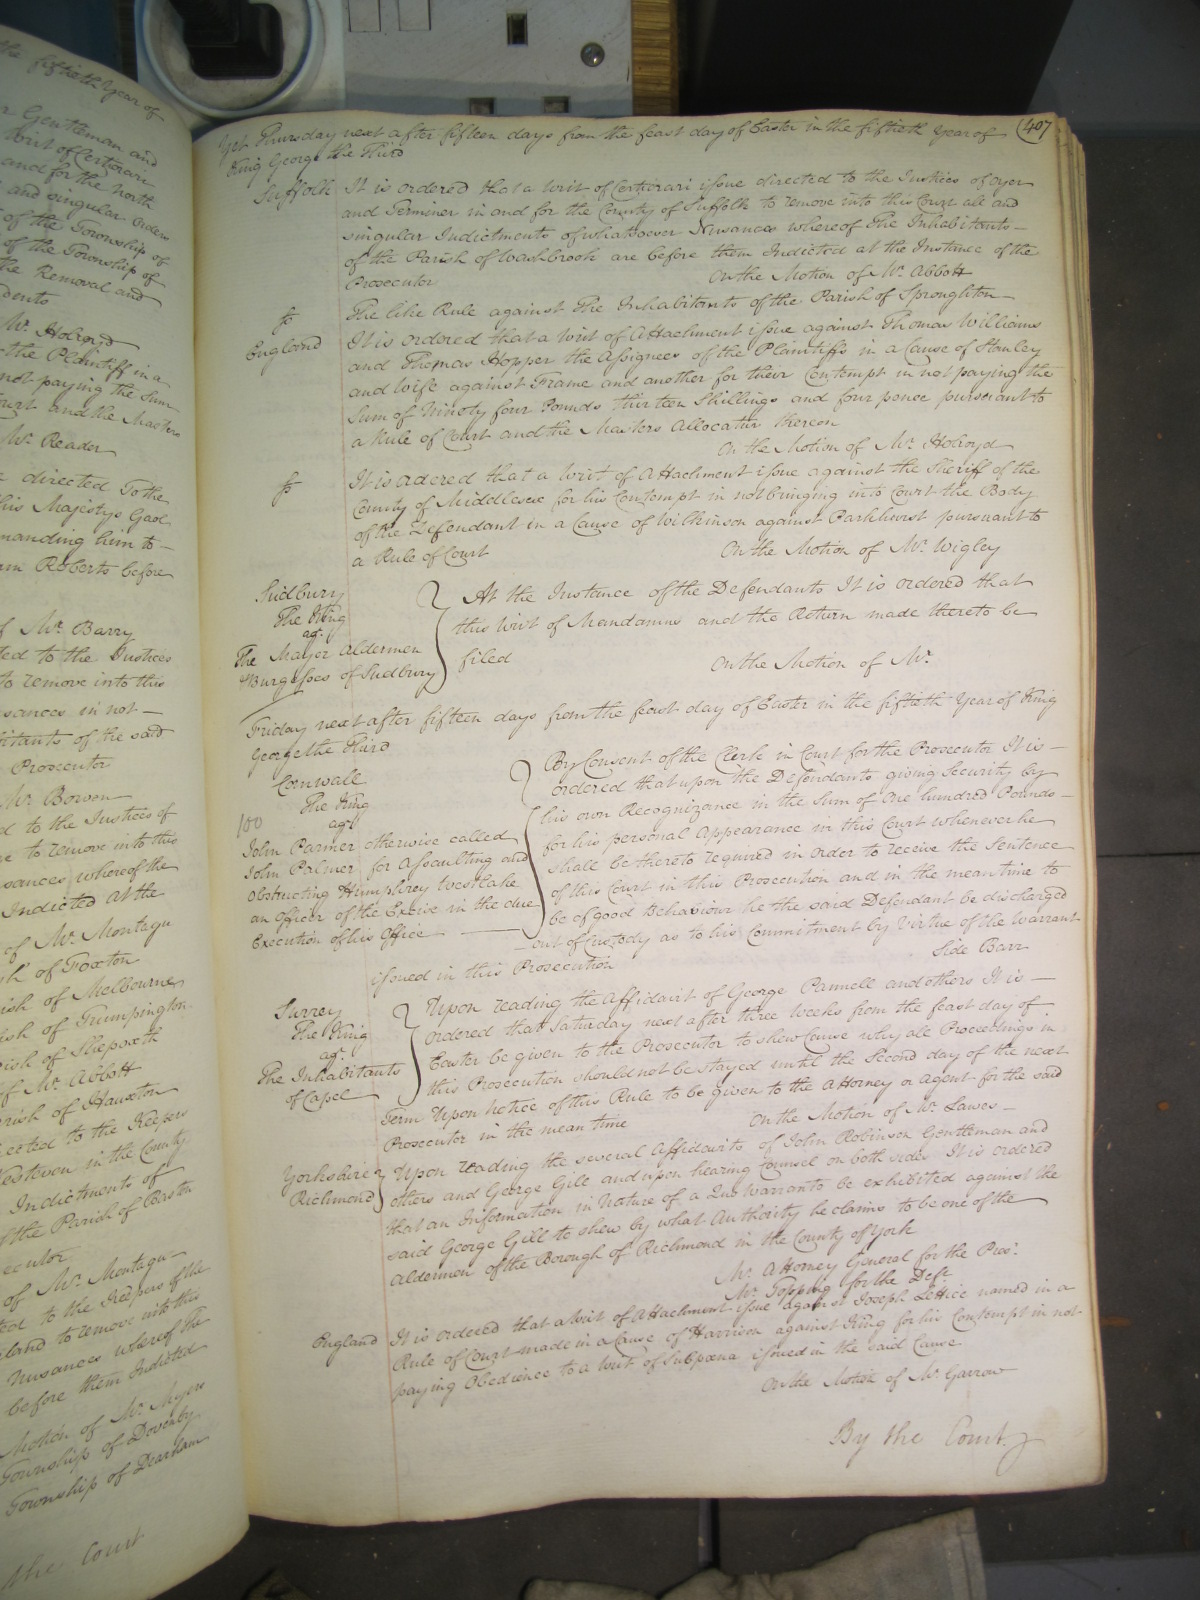 the fiftieth Year of
r Gentleman and
Writ of Certiorari
and for the North
and singular orders
of the Township of
of the Township of
the Removal and
dents
Mr. Holroyd
the Plaintiff in a
not paying the Sum
ourt and the Masters
Mr. Reader
directed To the
his Majestys Gaol
manding him to —
am Roberts before
f Mr. Barry
ted to the Justices
to remove into this
sances in not —
itants of the said
Prosecutor
Mr. Bowen
d to the Justices of
ve to remove into this
sances whereof the
Indicted at the
of Mr. Montagu
sh of Foxton
ish of Melbourne
ish of Trumpington
rish of Shepreth
of Mr. Abbott
rish of Hauxton
rected to the Keepers
Kesteven in the County
Indictments of
of the Parish of Baston
ecutor
of Mr. Montagu
ted to the Keepers of the
land to remove into this
Nusances whereof the
before them Indicted
Motion of Mr. Myers
Township of Dovenby
Township of Dearham
the Court
407
Yet Thursday next after fifteen days from the feast day of Easter in the fiftieth Year of
King George the Third
Suffolk It is ordered that a Writ of Certiorari issue directed to the Justices of oyer
and Terminer in and for the County of Suffolk to remove into this Court all and
singular Indictments of whatsoever Nusances whereof The Inhabitants —
of the Parish of Washbrook are before them Indicted at the Instance of the
Prosecutor On the Motion of Mr. Abbott
The like Rule against The Inhabitants of the Parish of Sproughton —
England It is ordered that a Writ of Attachment issue against Thomas Williams
and Thomas Hopper the Assignees of the Plaintiffs in a Cause of Stanley
and Wife against Frame and another for their Contempt in not paying the
Sum of Ninety four Pounds thirteen Shillings and four pence pursuant to
a Rule of Court and the Masters Allocatur thereon
On the Motion of Mr. Holroyd
It is ordered that a Writ of Attachment issue against the Sheriff of the
County of Middlesex for his Contempt in not bringing into Court the Body
of the Defendant in a Cause of Wilkinson against Parkhurst pursuant to
a Rule of Court On the Motion of Mr. Wigley
Sudbury
The King
agt.
The Mayor Aldermen
& Burgesses of Sudbury
At the Instance of the Defendants It is ordered that
this Writ of Mandamus and the Return made thereto be
filed On the Motion of Mr.
Friday next after fifteen days from the feast day of Easter in the fiftieth Year of King
George the Third
Cornwall
The King
agt.
100
John Parmer otherwise called
John Palmer for Assaulting and
obstructing Humphrey Westlake
an Officer of the Excise in the due
Execution of his Office —
By Consent of the Clerk in Court for the Prosecutor It is —
ordered that upon the Defendants giving Security by
his own Recognizance in the Sum of One hundred Pounds —
for his personal Appearance in this Court whenever he
shall be thereto required in order to receive the Sentence
of this Court in this Prosecution and in the mean time to
be of good behaviour he the said Defendant be discharged
out of Custody as to his Commitment by Virtue of the Warrant
issued in this Prosecution Side Barr
Surrey
The King
agt.
The Inhabitants
of Capel
Upon reading the Affidavit of George Pannell and others It is —
ordered that Saturday next after three Weeks from the feast day of
Easter be given to the Prosecutor to shew Cause why all Proceedings in
this Prosecution should not be stayed until the Second day of the next
Term Upon Notice of this Rule to be given to the Attorney or Agent for the said
Prosecutor in the mean time On the Motion of Mr. Lawes —
Yorkshire
Richmond
Upon reading the several Affidavits of John Robinson Gentleman and
others and George Gill and upon hearing Counsel on both sides It is ordered
that an Information in Nature of a Quo Warranto be exhibited against the
said George Gill to shew by what Authority he claims to be one of the
Aldermen of the Borough of Richmond in the County of York
Mr. Attorney General for the Prosr.
Mr. Topping for the Deft
England It is ordered that a Writ of Attachment issue against Joseph Lettice named in a
Rule of Court made in a Cause of Harrison against King for his Contempt in not
paying Obedience to a Writ of Subpœna issued in the said Cause
On the Motion of Mr. Garrow
By the Court